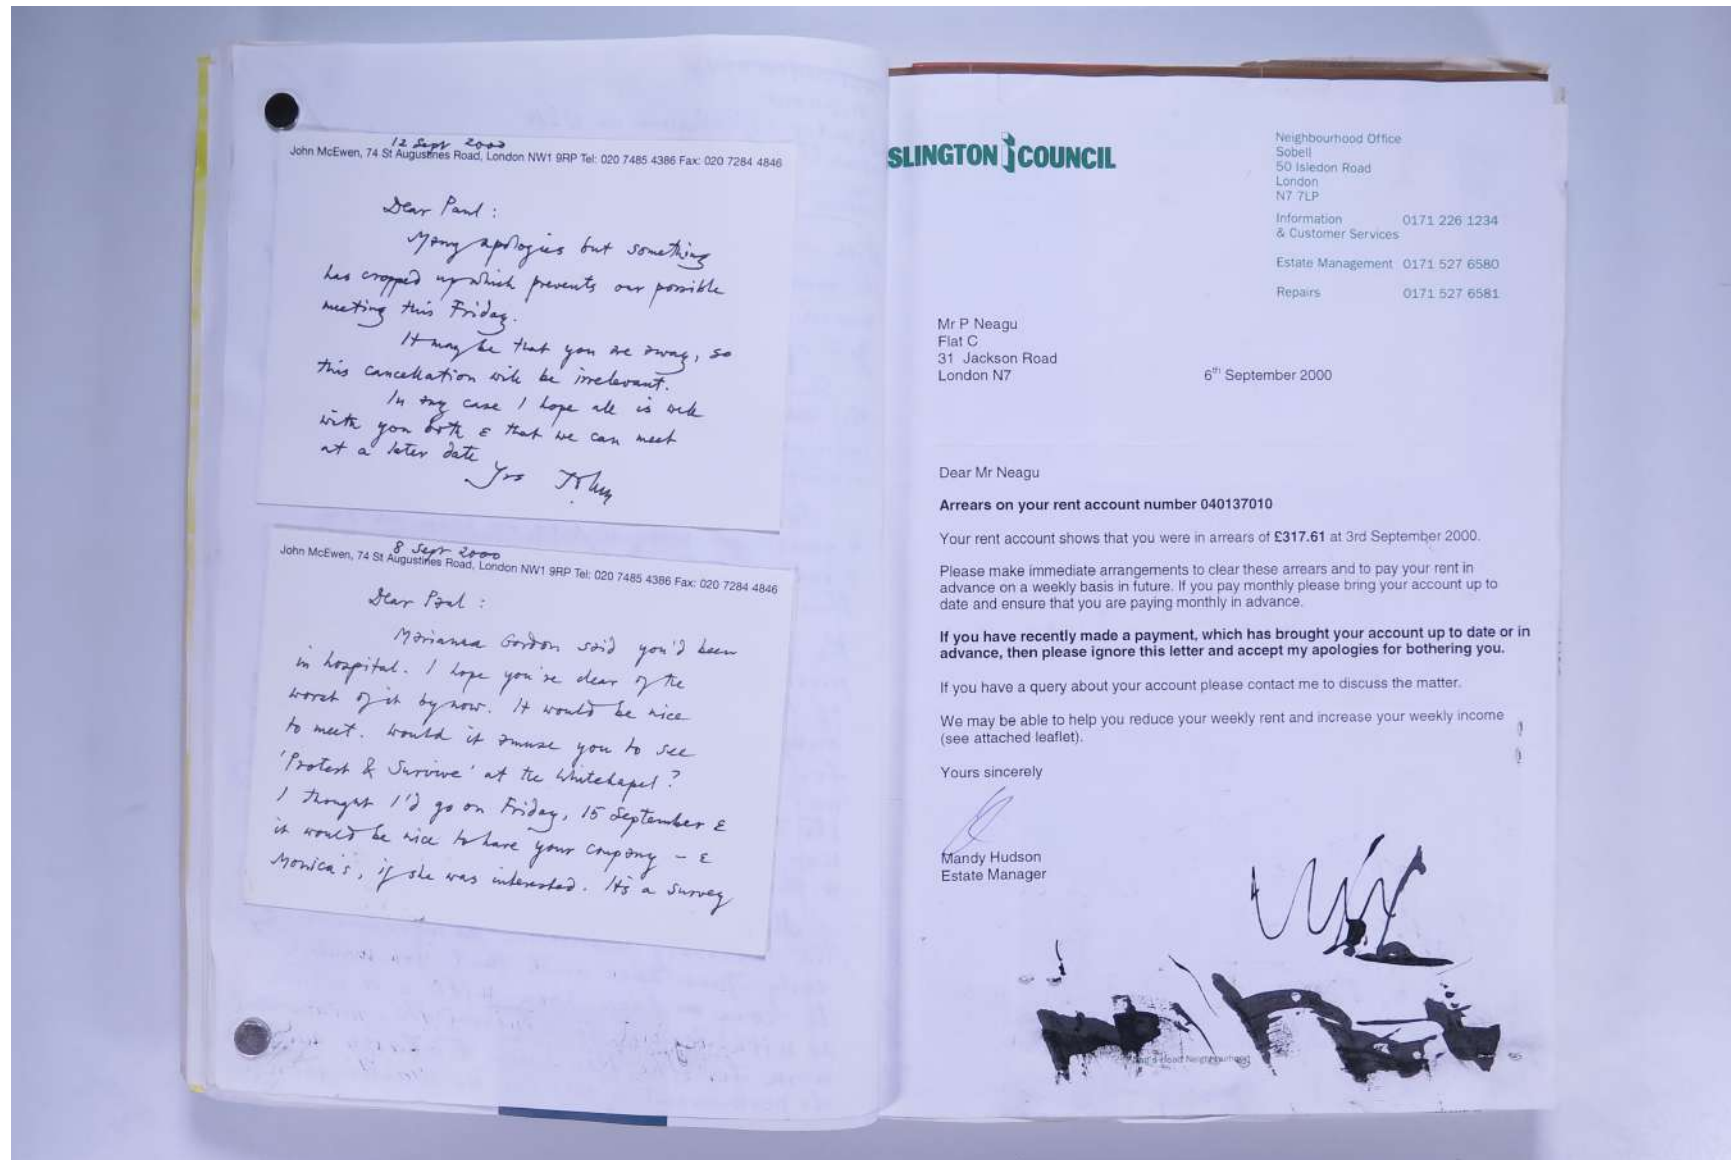 12 Sept 2000
John McEwen, 74 St Augustines Road, London NW1 9RP Tel: 020 7485 4386 Fax: 020 7284 4846
Dear Paul :
Many apologies but something
has cropped up which prevents our possible
meeting this Friday.
It may be that you are away, so
this cancellation will be irrelevant.
In any case I hope all is well
with you both & that we can meet
at a later date
Yrs John
8 Sept 2000
John McEwen, 74 St Augustines Road, London NW1 9RP Tel: 020 7485 4386 Fax: 020 7284 4846
Dear Paul :
Marianna Gordon said you'd been
in hospital. I hope you're clear of the
worst of it by now. It would be nice
to meet. Would it amuse you to see
'Protest & Survive' at the Whitechapel?
I thought I'd go on Friday, 15 September &
it would be nice to have your company – &
Monica's, if she was interested. It's a survey
SLINGTON COUNCIL
Neighbourhood Office
Sobell
50 Isledon Road
London
N7 7LP
Information 0171 226 1234
& Customer Services
Estate Management 0171 527 6580
Repairs 0171 527 6581
Mr P Neagu
Flat C
31 Jackson Road
London N7
6th September 2000
Dear Mr Neagu
Arrears on your rent account number 040137010
Your rent account shows that you were in arrears of £317.61 at 3rd September 2000.
Please make immediate arrangements to clear these arrears and to pay your rent in
advance on a weekly basis in future. If you pay monthly please bring your account up to
date and ensure that you are paying monthly in advance.
If you have recently made a payment, which has brought your account up to date or in
advance, then please ignore this letter and accept my apologies for bothering you.
If you have a query about your account please contact me to discuss the matter.
We may be able to help you reduce your weekly rent and increase your weekly income
(see attached leaflet).
Yours sincerely
Mandy Hudson
Estate Manager
Neighbourhood